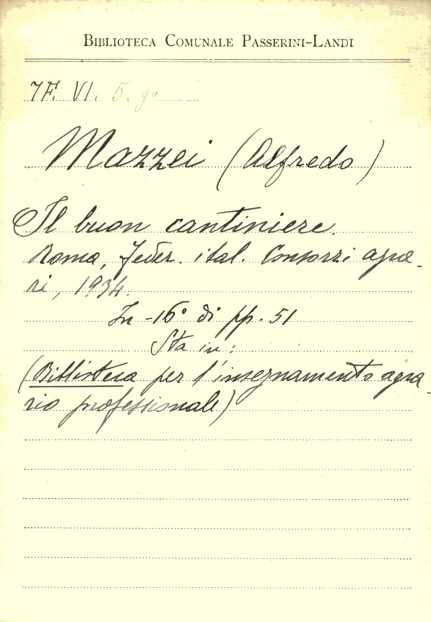 BIBLIOTECA COMUNALE PASSERINI-LANDI
7F. VI. 5. 90
Mazzei (Alfredo)
Il buon cantiniere.
Roma, Feder. ital. Consorzi agra-
ri, 1934.
In-16° di pp. 51
Sta in:
(Biblioteca per l'insegnamento agra-
rio professionale)